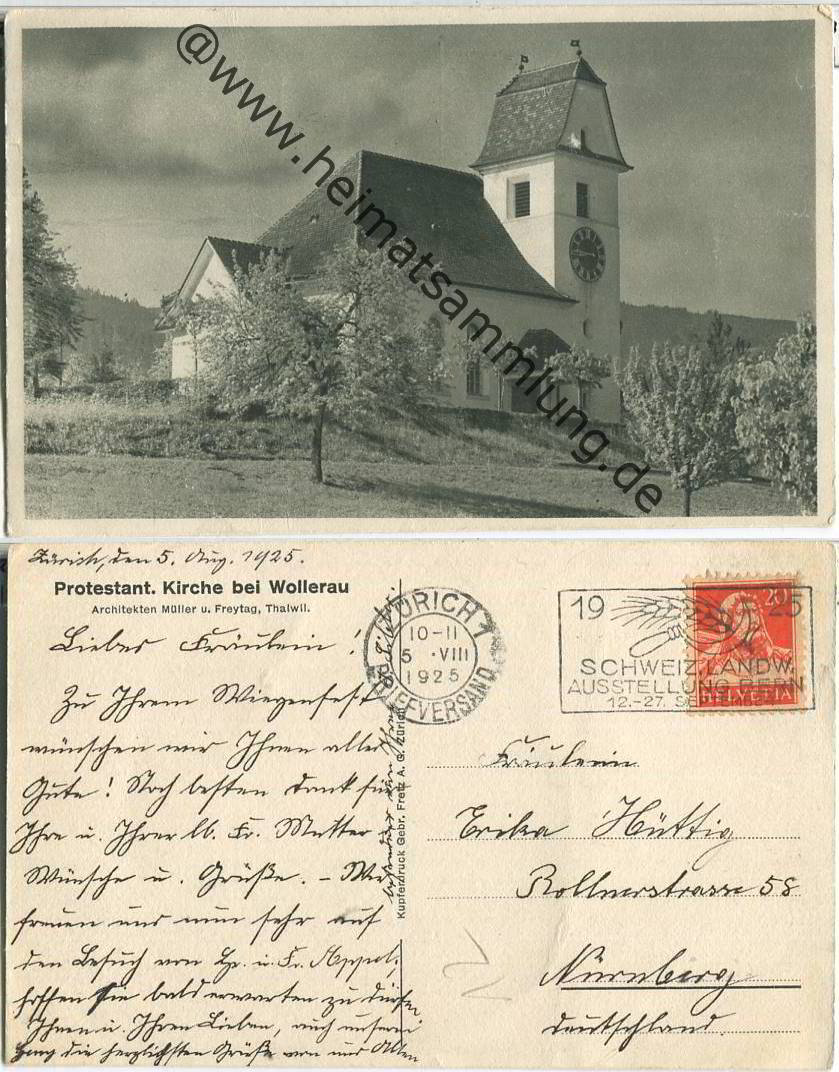 @www.heimatsammlung.de
Zürich, den 5. Aug. 1925.
Protestant. Kirche bei Wollerau
Architekten Müller u. Freytag, Thalwil.
Liebes Fräulein!
Zu Ihrem Wiegenfest
wünschen wir Ihnen alles
Gute! Noch besten Dank für
Ihre u. Ihrer lb. Fr. Mutter
Wünsche u. Grüße. - Wir
freuen uns nun sehr auf
den Besuch von Hr. u. Fr. Appel;
hoffen sie bald erwarten zu dürfen,
Ihnen u. Ihren Lieben, auch unserer
die herzlichsten Grüße von uns Allen
Kupferdruck Gebr. Fretz A. G. Zürich
ZÜRICH 1
10-11
5 .VIII
1925
BRIEFVERSAND
1925
SCHWEIZ.LANDW.
AUSSTELLUNG BERN
12.-27. SEPTEMBER
20
HELVETIA
Fräulein
Erika Hüttig
Rollnerstrasse 58
Nürnberg
Deutschland.